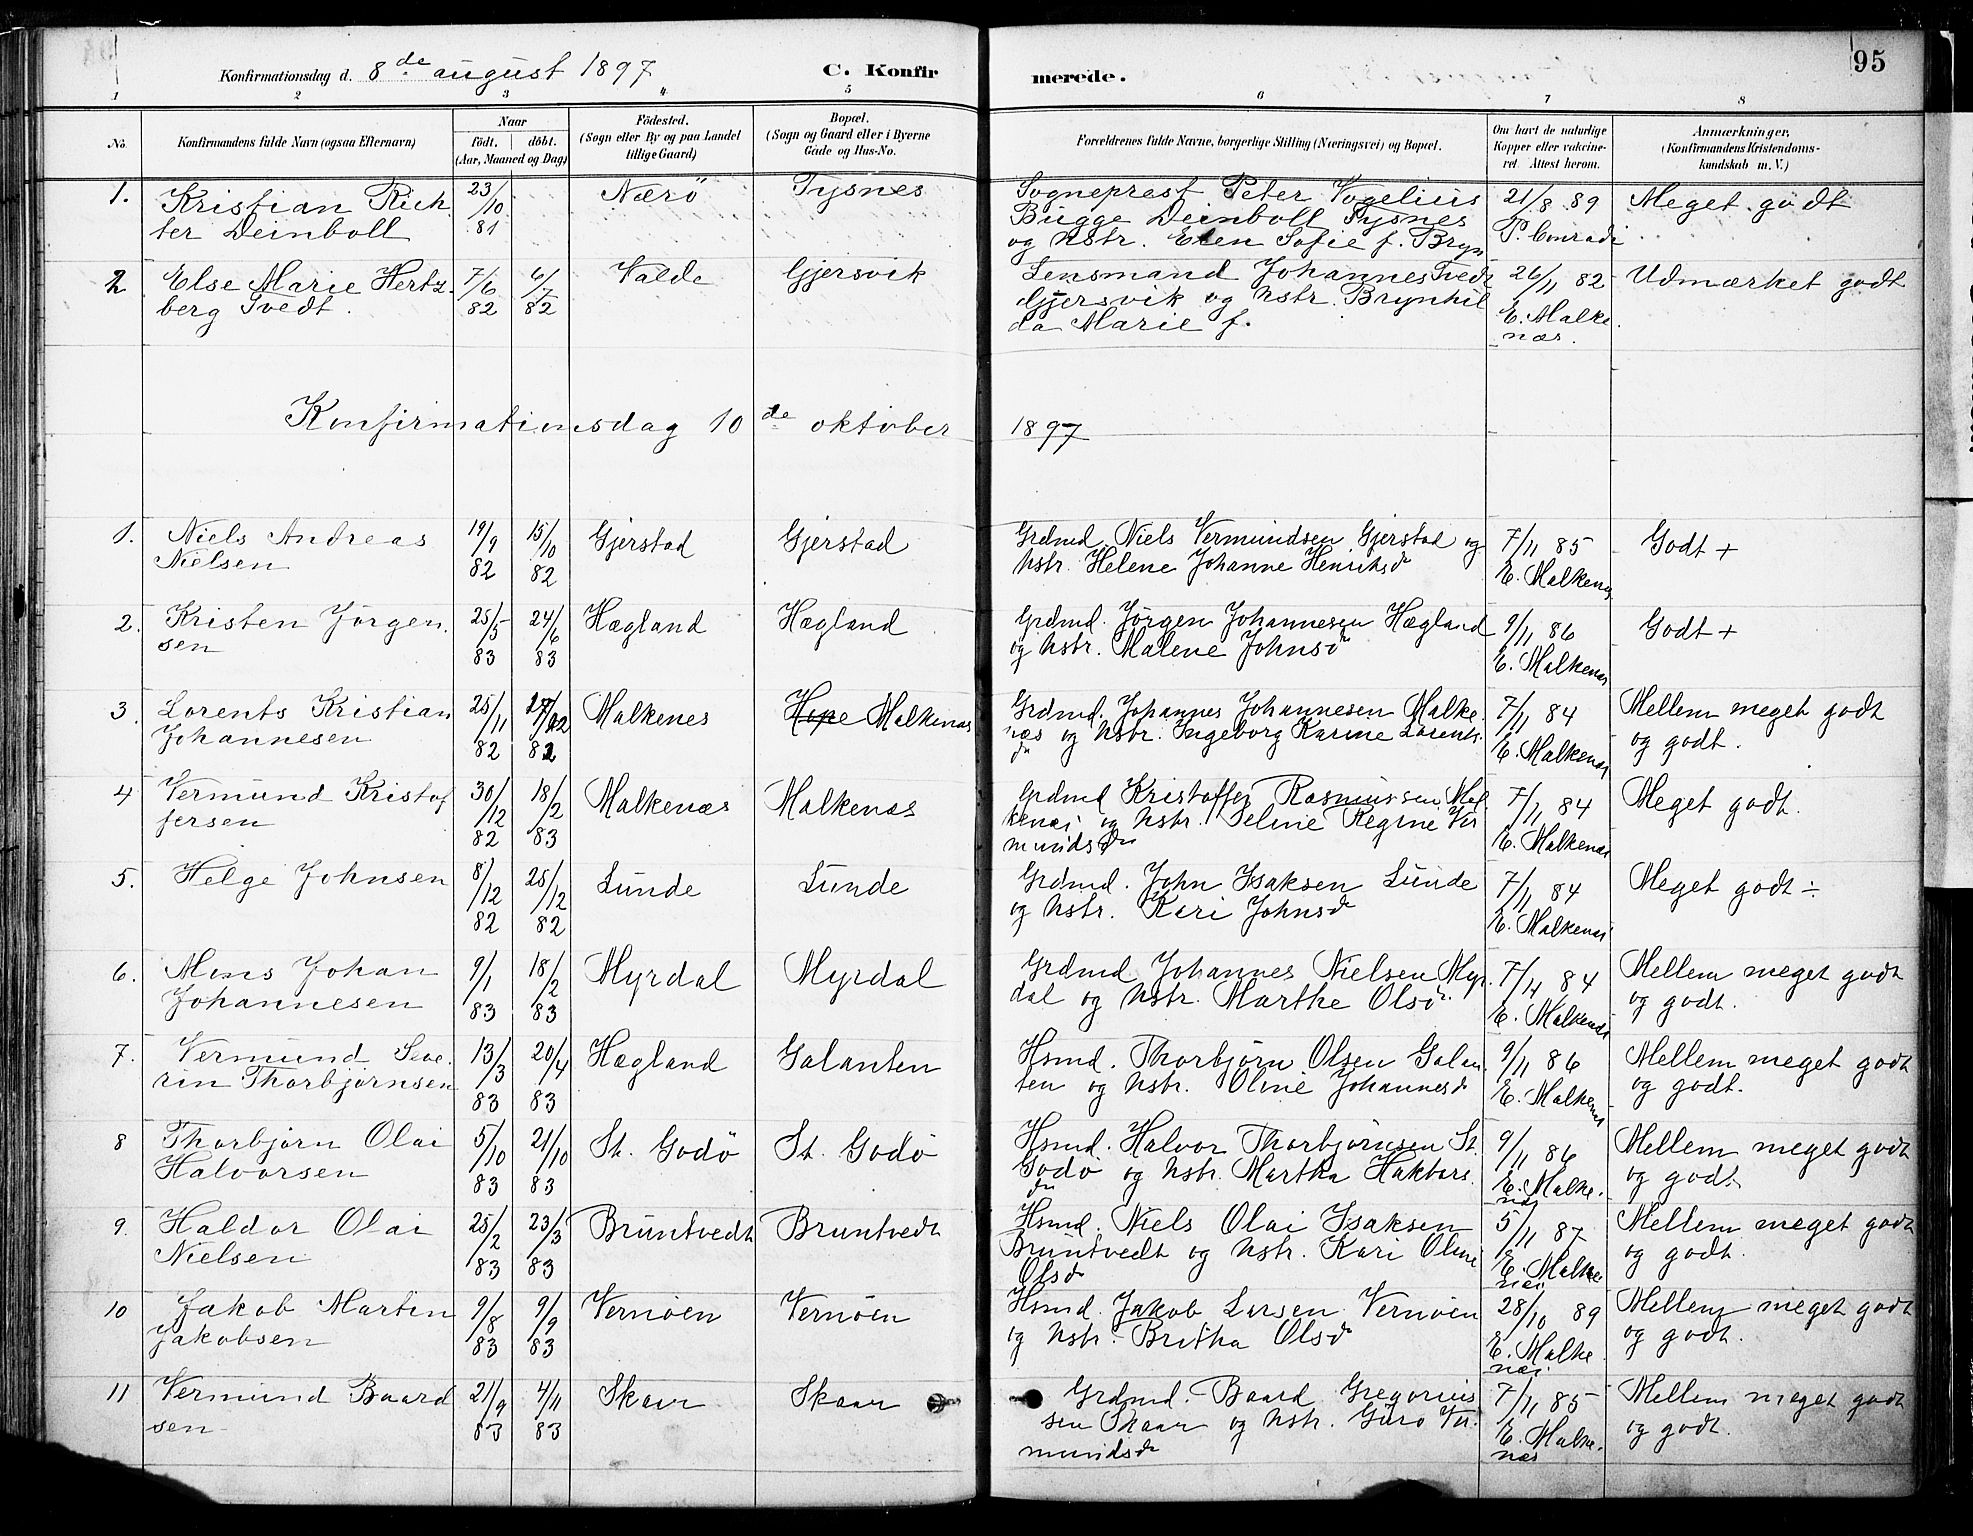 95
Konfirmationsdag d. 8de august 1897 C. Konfirmerede.
1 2 3 4 5 6 7 8
No. Konfirmandens fulde Navn (ogsaa Efternavn) Naar födt. döbt. (Aar, Maaned og Dag) Födested. (Sogn eller By og paa Landet tillige Gaard) Bopæl. (Sogn og Gaard eller i Byerne Gade og Hus-No. Forældrenes fulde Navne, borgerlige Stilling (Næringsvei) og Bopæl. Om havt de naturlige Kopper eller vakcineret. Attest herom. Anmærkninger. (Konfirmandens Kristendomskundskab m. V.)
1. Kristian Rich 23/10 81 Nærö Tysnes Sogneprest Peter Vogelius 21/8 89 Meget godt
ter Deinboll Bugge Deinboll Tysnes P. Conradi
og Hstr. Elen Sofie f. Bryn
2 Else Marie Hertz 7/6 82 6/7 82 Valde Gjersvik Lensmand Johannes Tvedt 26/11 82 Udmærket godt
berg Tvedt. Gjersvik og Hstr. Brynhil E. Malke
da Marie f. næs.
Konfirmationsdag 10de oktober 1897
1. Niels Andreas 19/9 82 15/10 82 Gjerstad Gjerstad Grdmd. Niels Vermundsen Gjerstad og 7/11 85 Godt +
Nielsen Hstr. Helene Johanne Henriksdr E. Malkenes
2. Kristen Jörgen 25/5 83 24/6 83 Hægland Hægland Grdmd. Jörgen Johannesen Hægland 9/11 86 Godt +
sen og Hstr. Malene Johnsdr E. Malkenæs
3. Lorents Kristian 25/11 82 /12 82 Malkenes Hope Malkenæs Grdmd. Johannes Johannesen Malke 7/11 84 Mellem meget godt
Johannesen næs og Hstr. Ingeborg Karine Lorents E. Malkenæs og godt.
dr
4 Vermund Kristof 30/12 82 18/2 83 Malkenæs Malkenæs Grdmd Kristoffer Rasmussen Mal 7/11 84 Meget godt.
fersen kenæs og Hstr. Seline Regine Ver E. Malkenæs
mundsdr
5. Helge Johnsen 8/12 82 25/12 82 Lunde Lunde Grdmd. John Isaksen Lunde 7/11 84 Meget godt ÷
og Hstr. Kari Johnsdr E. Malkenæs
6. Mons Johan 9/1 83 18/2 83 Myrdal Myrdal Grdmd Johannes Nielsen Myr 7/11 84 Mellem meget godt
Johannesen dal og Hstr. Marthe Olsdr. E. Malkenæs og godt.
7. Vermund Seve 13/3 83 20/4 83 Hægland Galanten Hsmd. Thorbjörn Olsen Galan 9/11 86 Mellem meget godt
rin Thorbjörnsen ten og Hstr. Oline Johannesdr E. Malkenæs og godt.
8 Thorbjörn Olai 5/10 83 21/10 83 St. Godö St. Godö Hsmd. Halvor Thorbjörnsen St. 9/11 86 Mellem meget godt
Halvorsen Godö og Hstr. Martha Hakbars E. Malke. og godt
dr næs
9. Haldor Olai 25/2 83 23/3 83 Bruntvedt Bruntvedt Hsmd. Niels Olai Isaksen 5/11 87 Mellem meget godt
Nielsen Bruntvedt og Hstr. Kari Oline E. Malke og godt.
Olsdr næs
10 Jakob Martin 9/8 83 9/9 83 Vernöen Vernöen Hsmd. Jakob Larsen Vernöen 28/10 89 Mellem meget godt
Jakobsen og Hstr. Britha Olsdr E. Malke og godt.
næs
11 Vermund Baard 21/9 83 4/11 83 Skaar Skaar Grdmd. Baard Gregorius 7/11 85 Mellem meget godt
sen sen Skaar og Hstr. Guro Ver E. Malke. og godt.
mundsdr næs